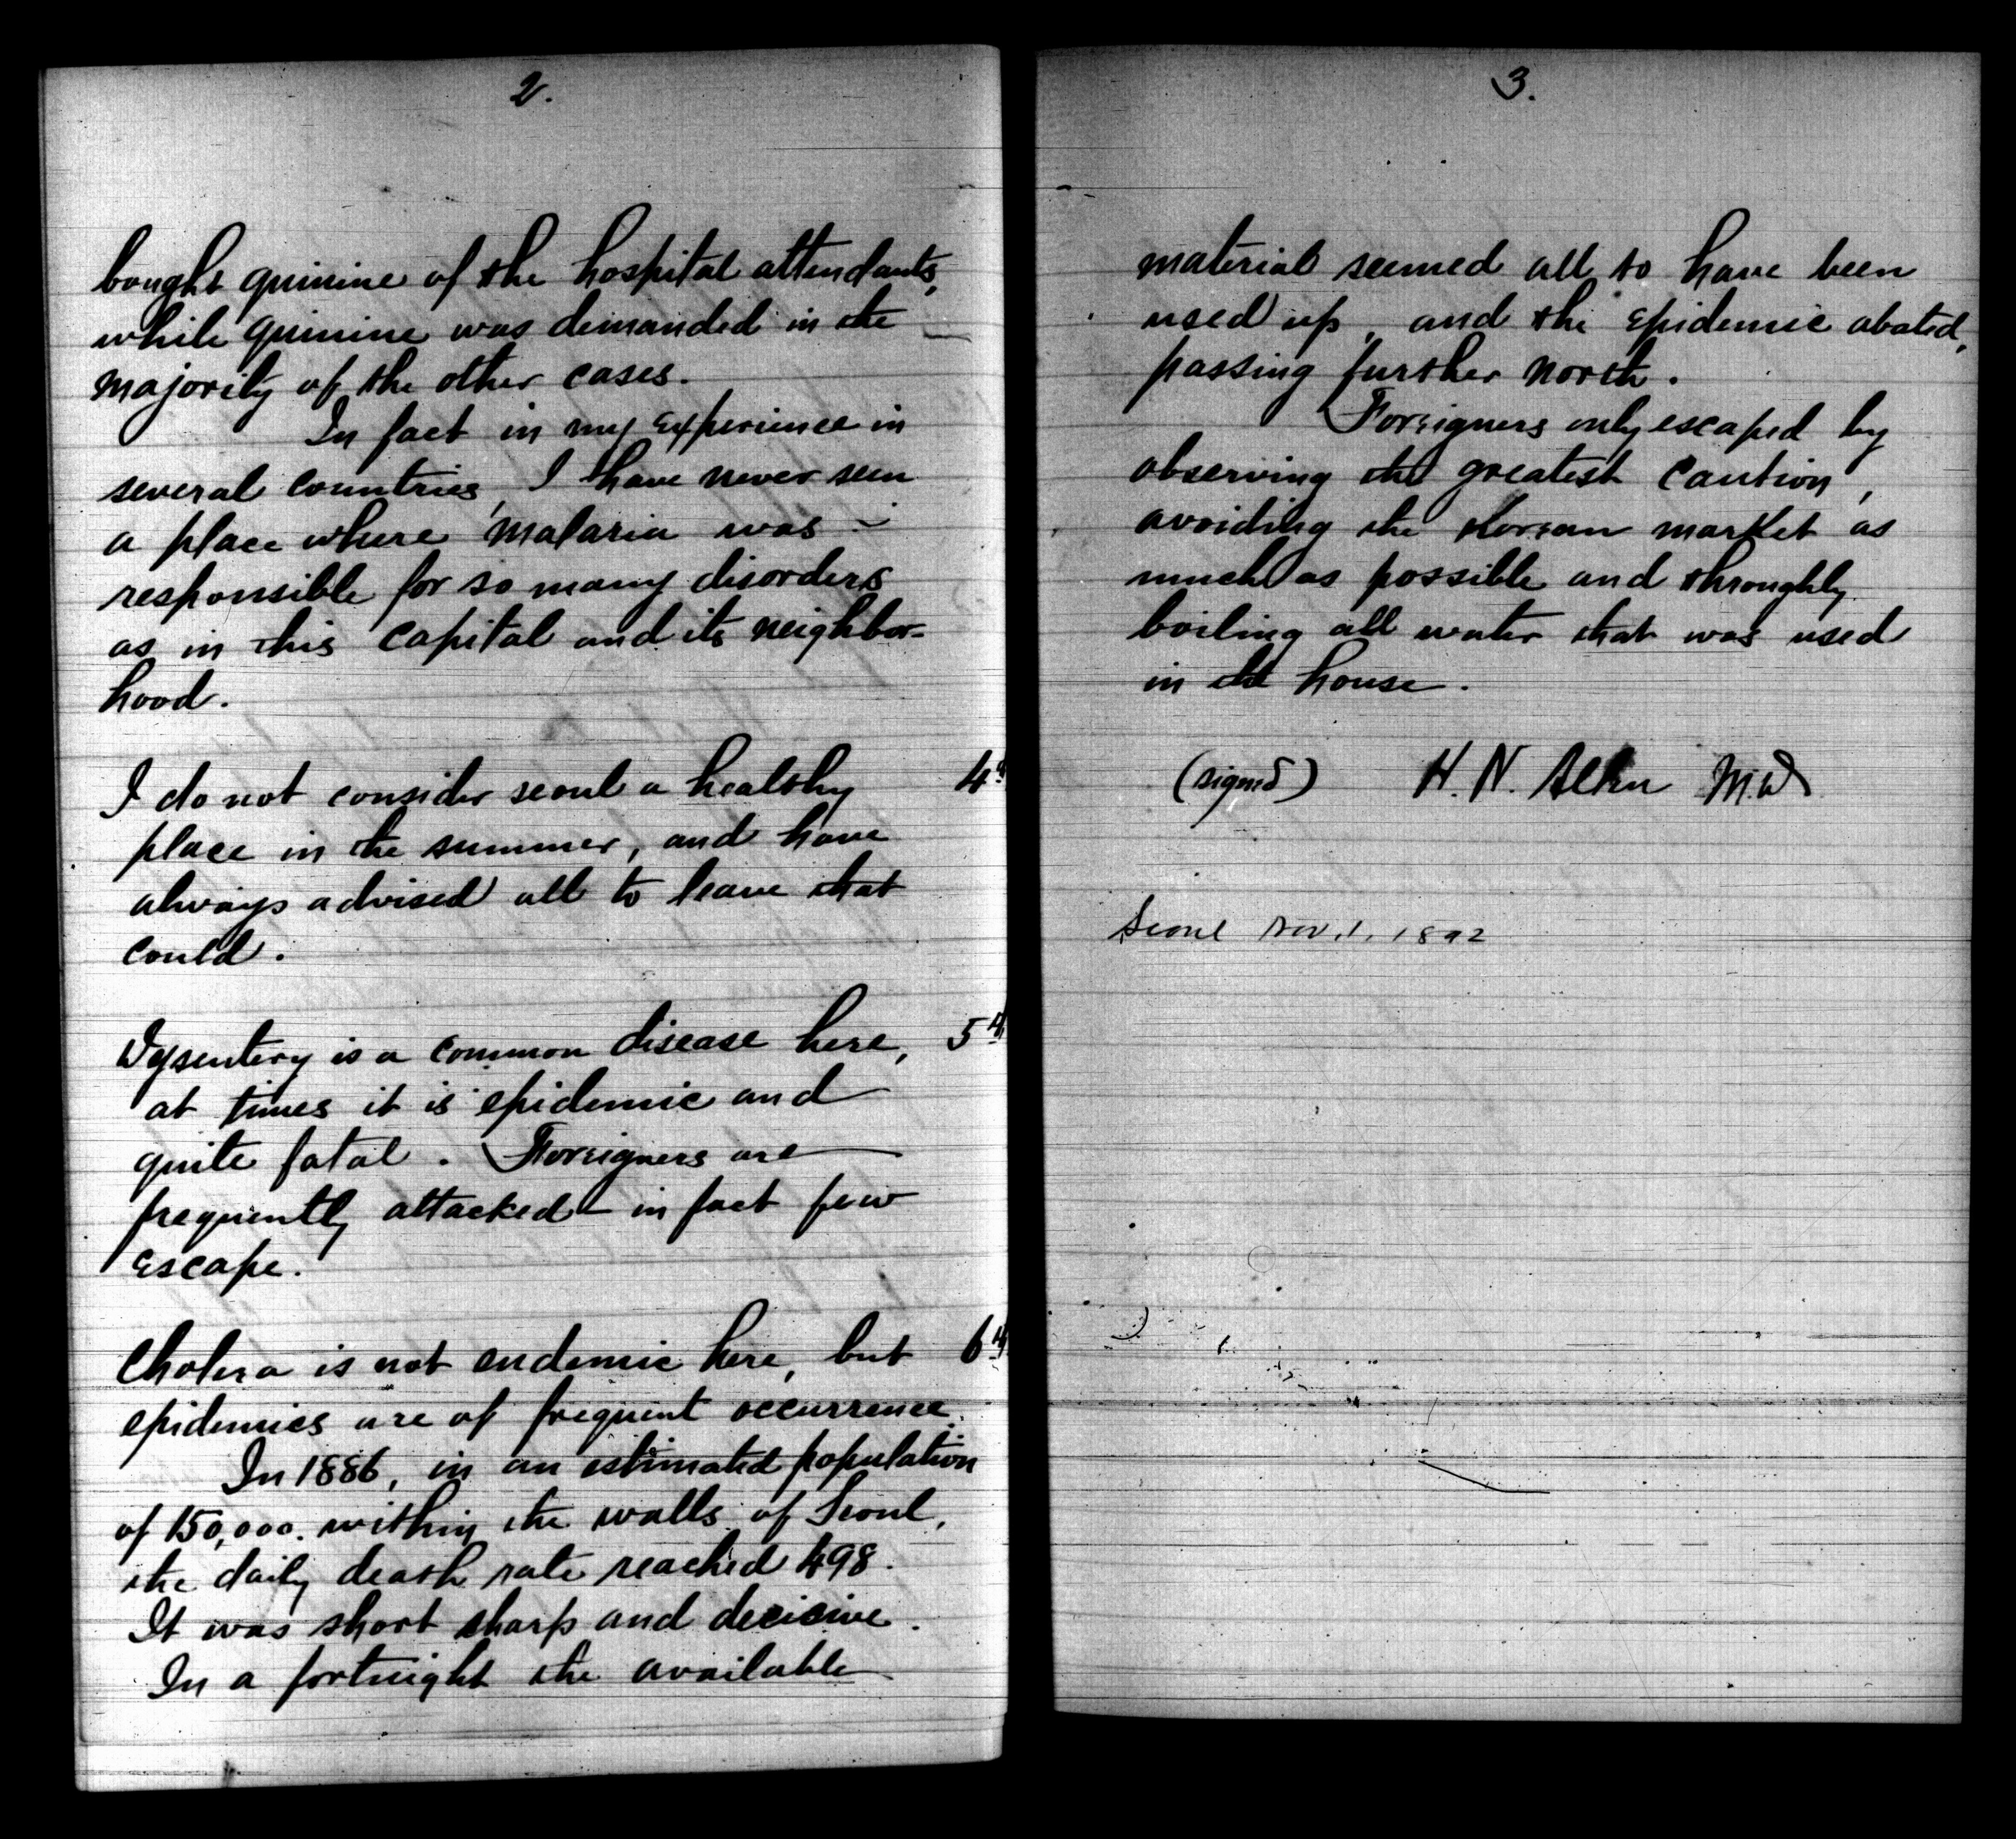 2.
bought quinine of the hospital attendants,
while quinine was demanded in the
majority of the other cases.
In fact in my experience in
several countries, I have never seen
a place where malaria was
responsible for so many disorders
as in this capital and its neighbor-
hood.
I do not consider seoul a healthy 4th
place in the summer, and have
always advised all to leave that
could.
Dysentery is a common disease here, 5th
at times it is epidemic and
quite fatal. Foreigners are
frequently attacked - in fact few
escape.
Cholera is not endemic here, but 6th
epidemics are of frequent occurrence.
In 1886, in an estimated population
of 150,000. within the walls of Seoul,
the daily death rate reached 498.
It was short sharp and decisive.
In a fortnight the available
3.
material seemed all to have been
used up, and the epidemic abated,
passing further north.
Foreigners only escaped by
observing the greatest caution,
avoiding the Korean market as
much as possible and throughly
boiling all water that was used
in the house.
(signed) H. N. Allen M.D
Seoul Nov. 1. 1892